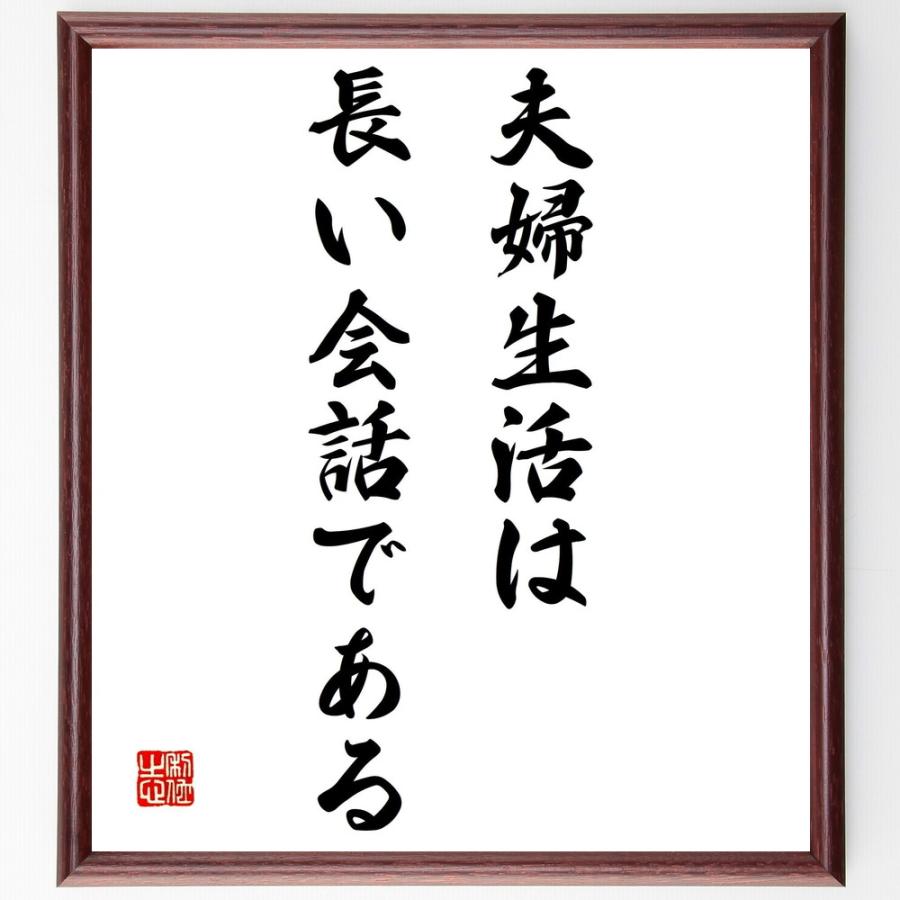 夫婦生活は
長い会話である